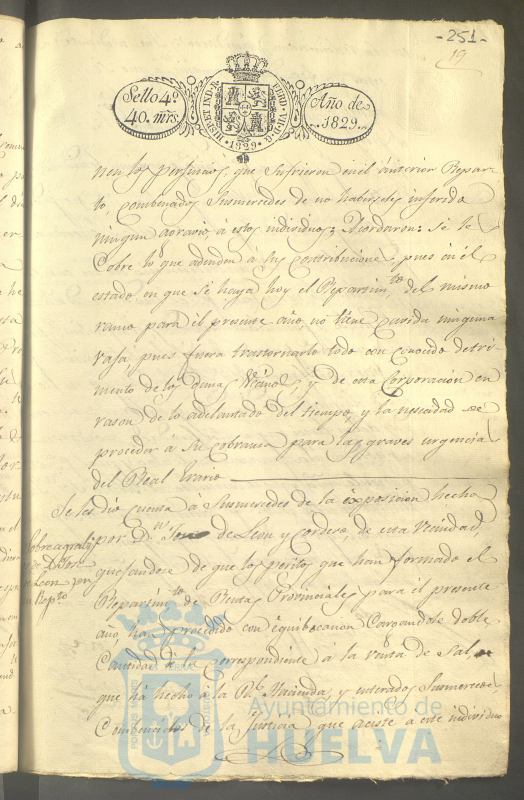 -251-
19
Sello 4º
40. mrs.
HISP. ET IND. R.
FERD. VII. D. G.
1829
Año de
1829
nen los perjuicios que sufrieron en el anterior Repar-
to, combenados Susmercedes de no haberseles inferido
ningun agravio, á estos individuos; Acordaron: Se le
Cobre lo que adeuden á sus contribuciones, pues en el
estado en que se haya hoy el Repartimto. del mismo
ramo para el presente año, no tiene cavida ninguna
vaja pues fuera trastornarlo todo con conocido detri-
mento de los demas Vecinos y de esta Corporacion en
rason de lo adelantado del tiempo, y la nesecidad de
proceder á su cobranza para las graves urgencias
del Real Erario
Se les dio cuenta á Susmercedes de la exposicion hecha
por Dn. de Leon y Cordero, de esta Vecindad
quejandose de que los peritos que han formado el
Repartimto. de Rentas Provinciales para el presente
año, han procedido con equibocacion Cargandole doble
Cantidad á la correspondiente á la venta de Sal,
que há hecho á la Rl. Hacienda, y enterados Susmercedes
Combencidos de la Justicia que aciste á este individuo
Sobre agrabio
de Dn.
de Leon en
su Repto.
Ayuntamiento de
HUELVA